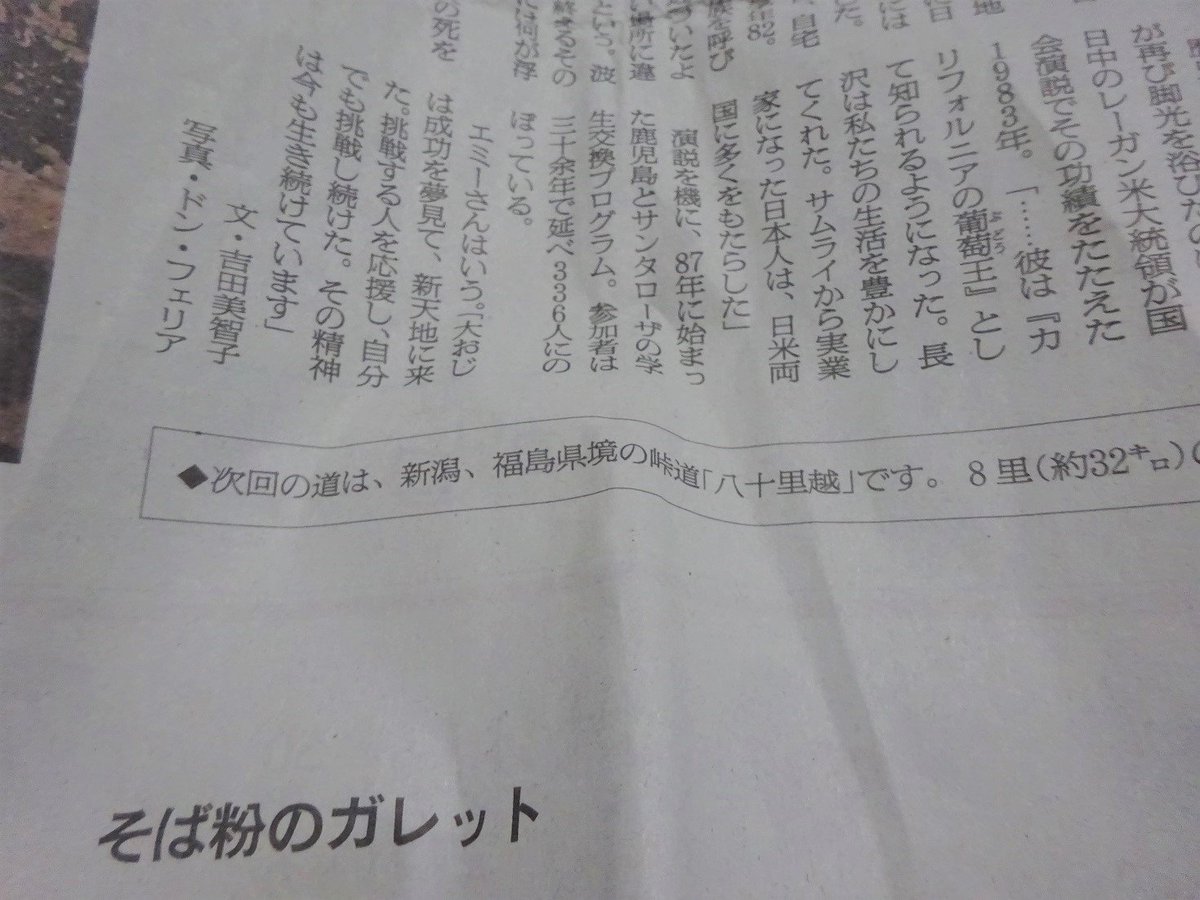 地
には
た。
、自宅
を呼び
ついたよ
場所に違
という。波
終えるその
には何が浮
の死を
が再び脚光を浴びたの
日中のレーガン米大統領が国
会演説でその功績をたたえた
1983年。「……彼は『カ
リフォルニアの葡萄王』とし
ぶどう
て知られるようになった。長
沢は私たちの生活を豊かにし
てくれた。サムライから実業
家になった日本人は、日米両
国に多くをもたらした」
演説を機に、87年に始まっ
た鹿児島とサンタローザの学
生交換プログラム。参加者は
三十余年で延べ336人にの
ぼっている。
エミーさんはいう。「大おじ
は成功を夢見て、新天地に来
た。挑戦する人を応援し、自分
でも挑戦し続けた。その精神
は今も生き続けています」
文・吉田美智子
写真・ドン・フェリア
◆次回の道は、新潟、福島県境の峠道「八十里越」です。8里(約32㌔)
そば粉のガレット